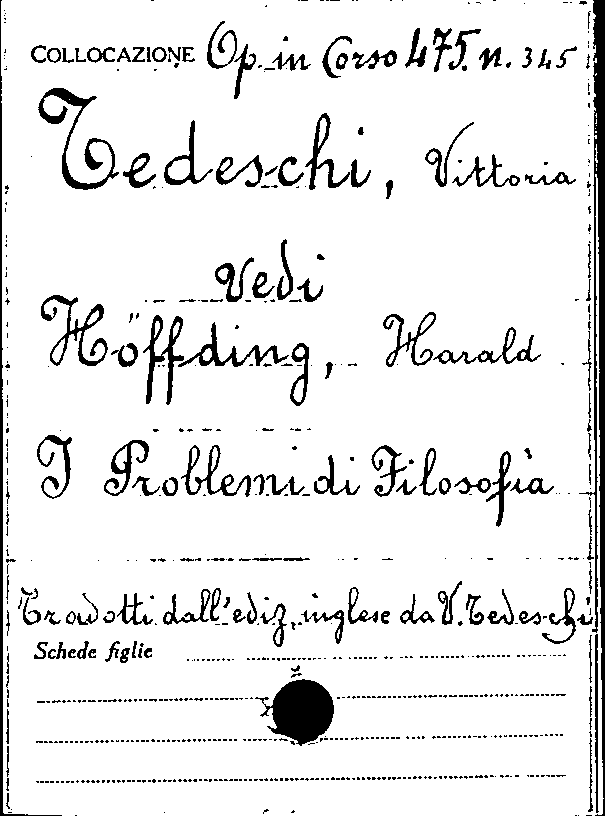 COLLOCAZIONE Op. in Corso 475. n. 345
Tedeschi, Vittoria
Vedi
Höffding, Harald
I Problemi di Filosofia
Tradotti dall'ediz. inglese da V. Tedeschi
Schede figlie